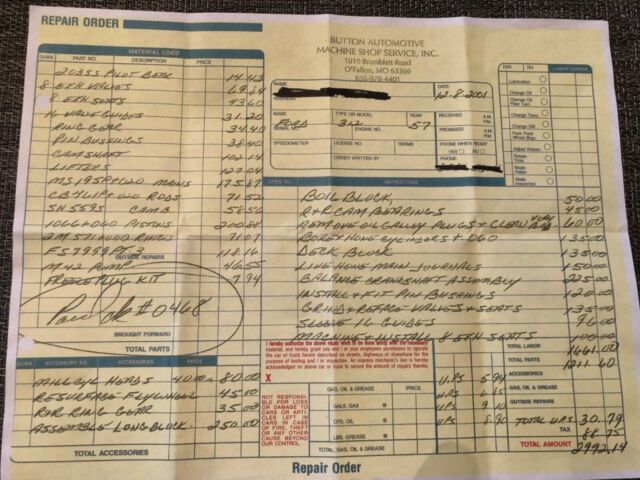 REPAIR ORDER
BUTTON AUTOMOTIVE
MACHINE SHOP SERVICE, INC.
1010 Bramblett Road
O'Fallon, MO 63366
636-978-4401
MATERIAL USED
QUAN. PART NO. DESCRIPTION PRICE
203SS PILOT BEAR. 14.43
8 EXH VALVES 69.84
8 EXH SEATS 43.60
16 VALVE GUIDES 31.20
RING GEAR 34.40
PIN BUSHINGS 38.40
CAMSHAFT 102.14
LIFTERS 127.04
MS195P+020 MAINS 175.87
CB411P+020 RODS 71.52
SH559S CAMB 58.56
1066+060 PISTONS 200.88
2M571+060 RINGS 71.07
FS7999PT-2 118.16
OUTSIDE REPAIRS
M42 PUMP 46.55
FREEZE PLUG KIT 7.94
CK#0468
BROUGHT FORWARD
TOTAL PARTS
NAME
ADDRESS
DATE
12-8-2001
MAKE
FORD
TYPE OR MODEL
312
YEAR
57
SERIAL NO.
ENGINE NO.
SPEEDOMETER
LICENSE NO.
TERMS
ORDER WRITTEN BY
RECEIVED A.M. P.M.
PROMISED A.M. P.M.
PHONE WHEN READY
YES NO
PHONE
LABOR CHARGE
Lubrication
Change Oil
Change Oil Filter Cart.
Change Trans.
Change Diff.
Pack Front Wheel Brgs.
Adjust Brakes
Rotate Tires
Wash Polish
State Inspection
OPER. NO. INSTRUCTIONS
BOIL BLOCK, 50.00
R+R CAM BEARINGS 45.00
REMOVE OIL GALLOY PLUGS + CLEAN VERY 60.00
BORE + HONE CYLINDERS + .060 135.00
DECK BLOCK 135.00
LINE HONE MAIN JOURNALS 150.00
BALANCE CRANKSHAFT ASSEMBLY 225.00
INSTALL + FIT PIN BUSHINGS 120.00
GRIND + REFACE VALVES + SEATS 135.00
SLEEVE 16 GUIDES 96.00
MACHINE + INSTALL 8 EXH SEATS 100.00
I hereby authorize the above repair work to be done along with the necessary material, and hereby grant you and / or your employees permission to operate the car or truck herein described on streets, highways or elsewhere for the purpose of testing and / or inspection. An express mechanic's lien is hereby acknowledged on above car or truck to secure the amount of repairs thereto.
X
TOTAL LABOR 1661.00
TOTAL PARTS 1211.60
QUAN. ACCESSORIES PRICE
MILL CYL HEADS 40.00 80.00
RESURFACE FLYWHEEL 45.00
R+R RING GEAR 35.00
ASSEMBLE LONG BLOCK. 250.00
TOTAL ACCESSORIES
NOT RESPONSIBLE FOR LOSS OR DAMAGE TO CARS OR ARTICLES LEFT IN CARS IN CASE OF FIRE, THEFT OR ANY OTHER CAUSE BEYOND OUR CONTROL.
GAS, OIL & GREASE
GALS. GAS @
QTS. OIL @
LBS. GREASE @
TOTAL, GAS, OIL & GREASE
UPS 5.94
UPS
UPS 9.10
UPS 8.90
ACCESSORIES
GAS, OIL & GREASE
OUTSIDE REPAIRS
TOTAL UPS 30.79
TAX 88.75
TOTAL AMOUNT 2992.14
Repair Order